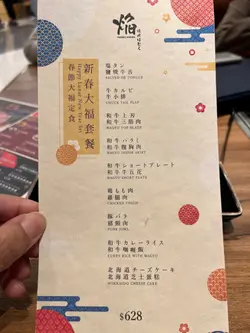 焔
新春大福套餐
Happy Lunar New Year Set
春節大福定食
塩タン
鹽燒牛舌
SALTED OX TONGUE
牛カルビ
牛小排
和牛上肩
和牛三筋肉
和牛バラミ
和牛腹胸肉
和牛ショートプレート
和牛牛五花
WAGYU SHORT PLATE
鶏もも肉
雞腿肉
CHICKEN THIGH
豚バラ
PORK JOWL
和牛カレーライス
和牛咖喱飯
CURRY RICE WITH WAGYU
北海道チーズケーキ
北海道芝士蛋糕
HOKKAIDO CHEESE CAKE
$628